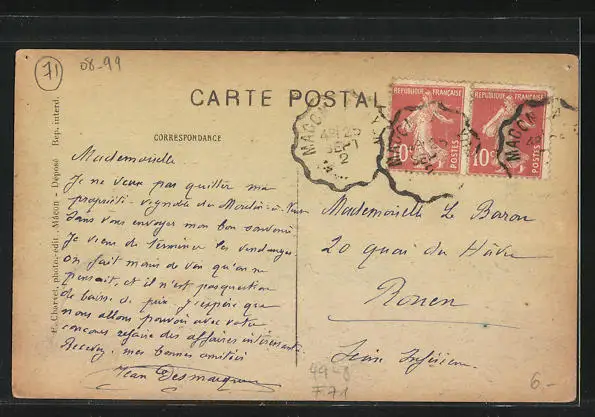 71
08-99
CARTE POSTALE
CORRESPONDANCE
E. Chervet, photo-édit., Mâcon - Déposé Rep. interd.
REPUBLIQUE FRANÇAISE
10c
POSTES
REPUBLIQUE FRANÇAISE
10c
POSTES
Mademoiselle
Je ne veux pas quitter ma
propriété vignoble du Moulin-à-Vent
sans vous envoyer mon bon souvenir
Je viens de terminer les vendanges
on fait moins de vin qu'on ne
pensait, et il n'est pas question
de baisse de prix. J'espère que
nous allons pouvoir avec votre
concours refaire des affaires intéressantes
Recevez mes bonnes amitiés
Jean
Mademoiselle Le Baron
20 quai du Hâvre
Rouen
Seine Inférieure
49-8
F.71
6.-